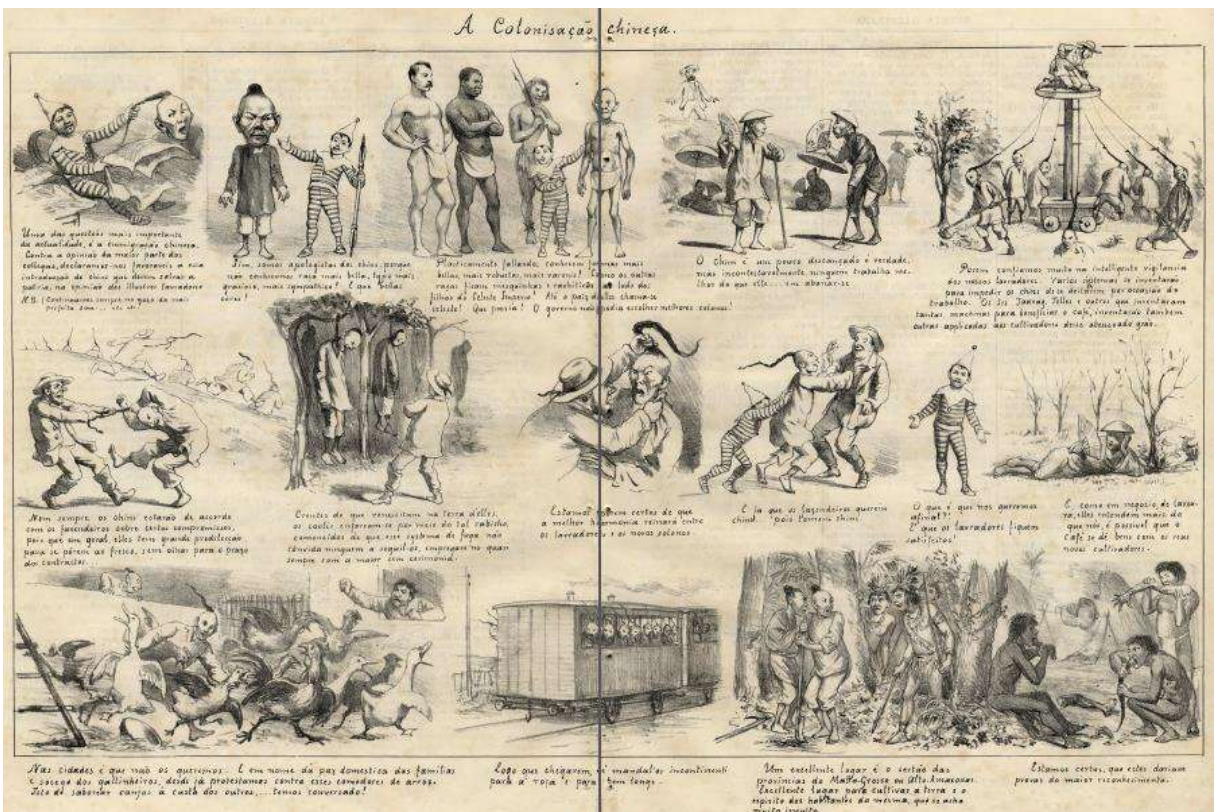 A Colonisação chineza.
Uma das questões mais importantes
da actualidade, é a immigração chineza.
Contra a opinião da maior parte dos
collegas, declaramo-nos favoraveis a essa
introducção de chins que devem salvar a
patria, na opinião dos illustres lavradores
N.B. (Continuamos sempre no gozo da mais
perfeita
Sim, somos apologistas dos chins, porque
não conhecemos raça mais bella, typos mais
graciosos, mais sympathicos! E que bellas
côres!
Plasticamente fallando, conhecem formas mais
bellas, mais robustas, mais varonis! Como as outras
raças ficam mesquinhas e rachiticas ao lado dos
filhos do Celeste Imperio! Até o paiz delles chama-se
celeste! Que poesia! O governo não podia escolher melhores colonos!
O Chim é um pouco descançado é verdade,
mas incontestavelmente ninguem trabalha me-
lhor do que elle... em abanar-se
Porem confiamos muito na intelligente vigilancia
dos nossos lavradores. Varios systemas se inventarão
para impedir os chins de se deitarem por occasião do
trabalho. Os Srs Taunay, Telles e outros que inventaram
tantas machinas para beneficiar o café, inventarão tambem
outras applicadas aos cultivadores desse abençoado grão.
Nem sempre os chins estarão de accordo
com os fazendeiros sobre certos compromissos,
pois que em geral, elles tem grande predilecção
para se pôrem ao fresco, sem olhar para o prazo
dos contractos.
Crentes de que resuscitam na terra d'elles,
os coolis enforcam-se por meio do tal rabicho,
convencidos de que esse systema de fuga não
convida ninguem a seguil-os, empregam-no quasi
sempre com a maior sem ceremonia.
Estamos porem certos de que
a melhor harmonia reinará entre
os lavradores e os novos colonos
E já que os fazendeiros querem
chins! pois tomem chins!
O que é que nós queremos
afinal?!
E que os lavradores fiquem
satisfeitos!
E, como em negocio de lavou-
ra, elles entendem mais do
que nós, é possivel que o
Café se dê bem com os seus
novos cultivadores.
Nas cidades é que não os queremos. E em nome da paz domestica das familias
e socego dos gallinheiros, desde já protestamos contra esses comedores de arroz.
Isto de saborear canjas á custa dos outros,... temos conversado!
Logo que chegarem, é mandal-os incontinenti
para a roça e para bem longe
Um excellente lugar é o sertão das
provincias do Matto-Grosso ou Alto-Amazonas.
Excellente lugar para cultivar a terra e o
espirito dos habitantes da mesma, que se acha
muito inculto.
Estamos certos, que estes dariam
provas do maior reconhecimento.